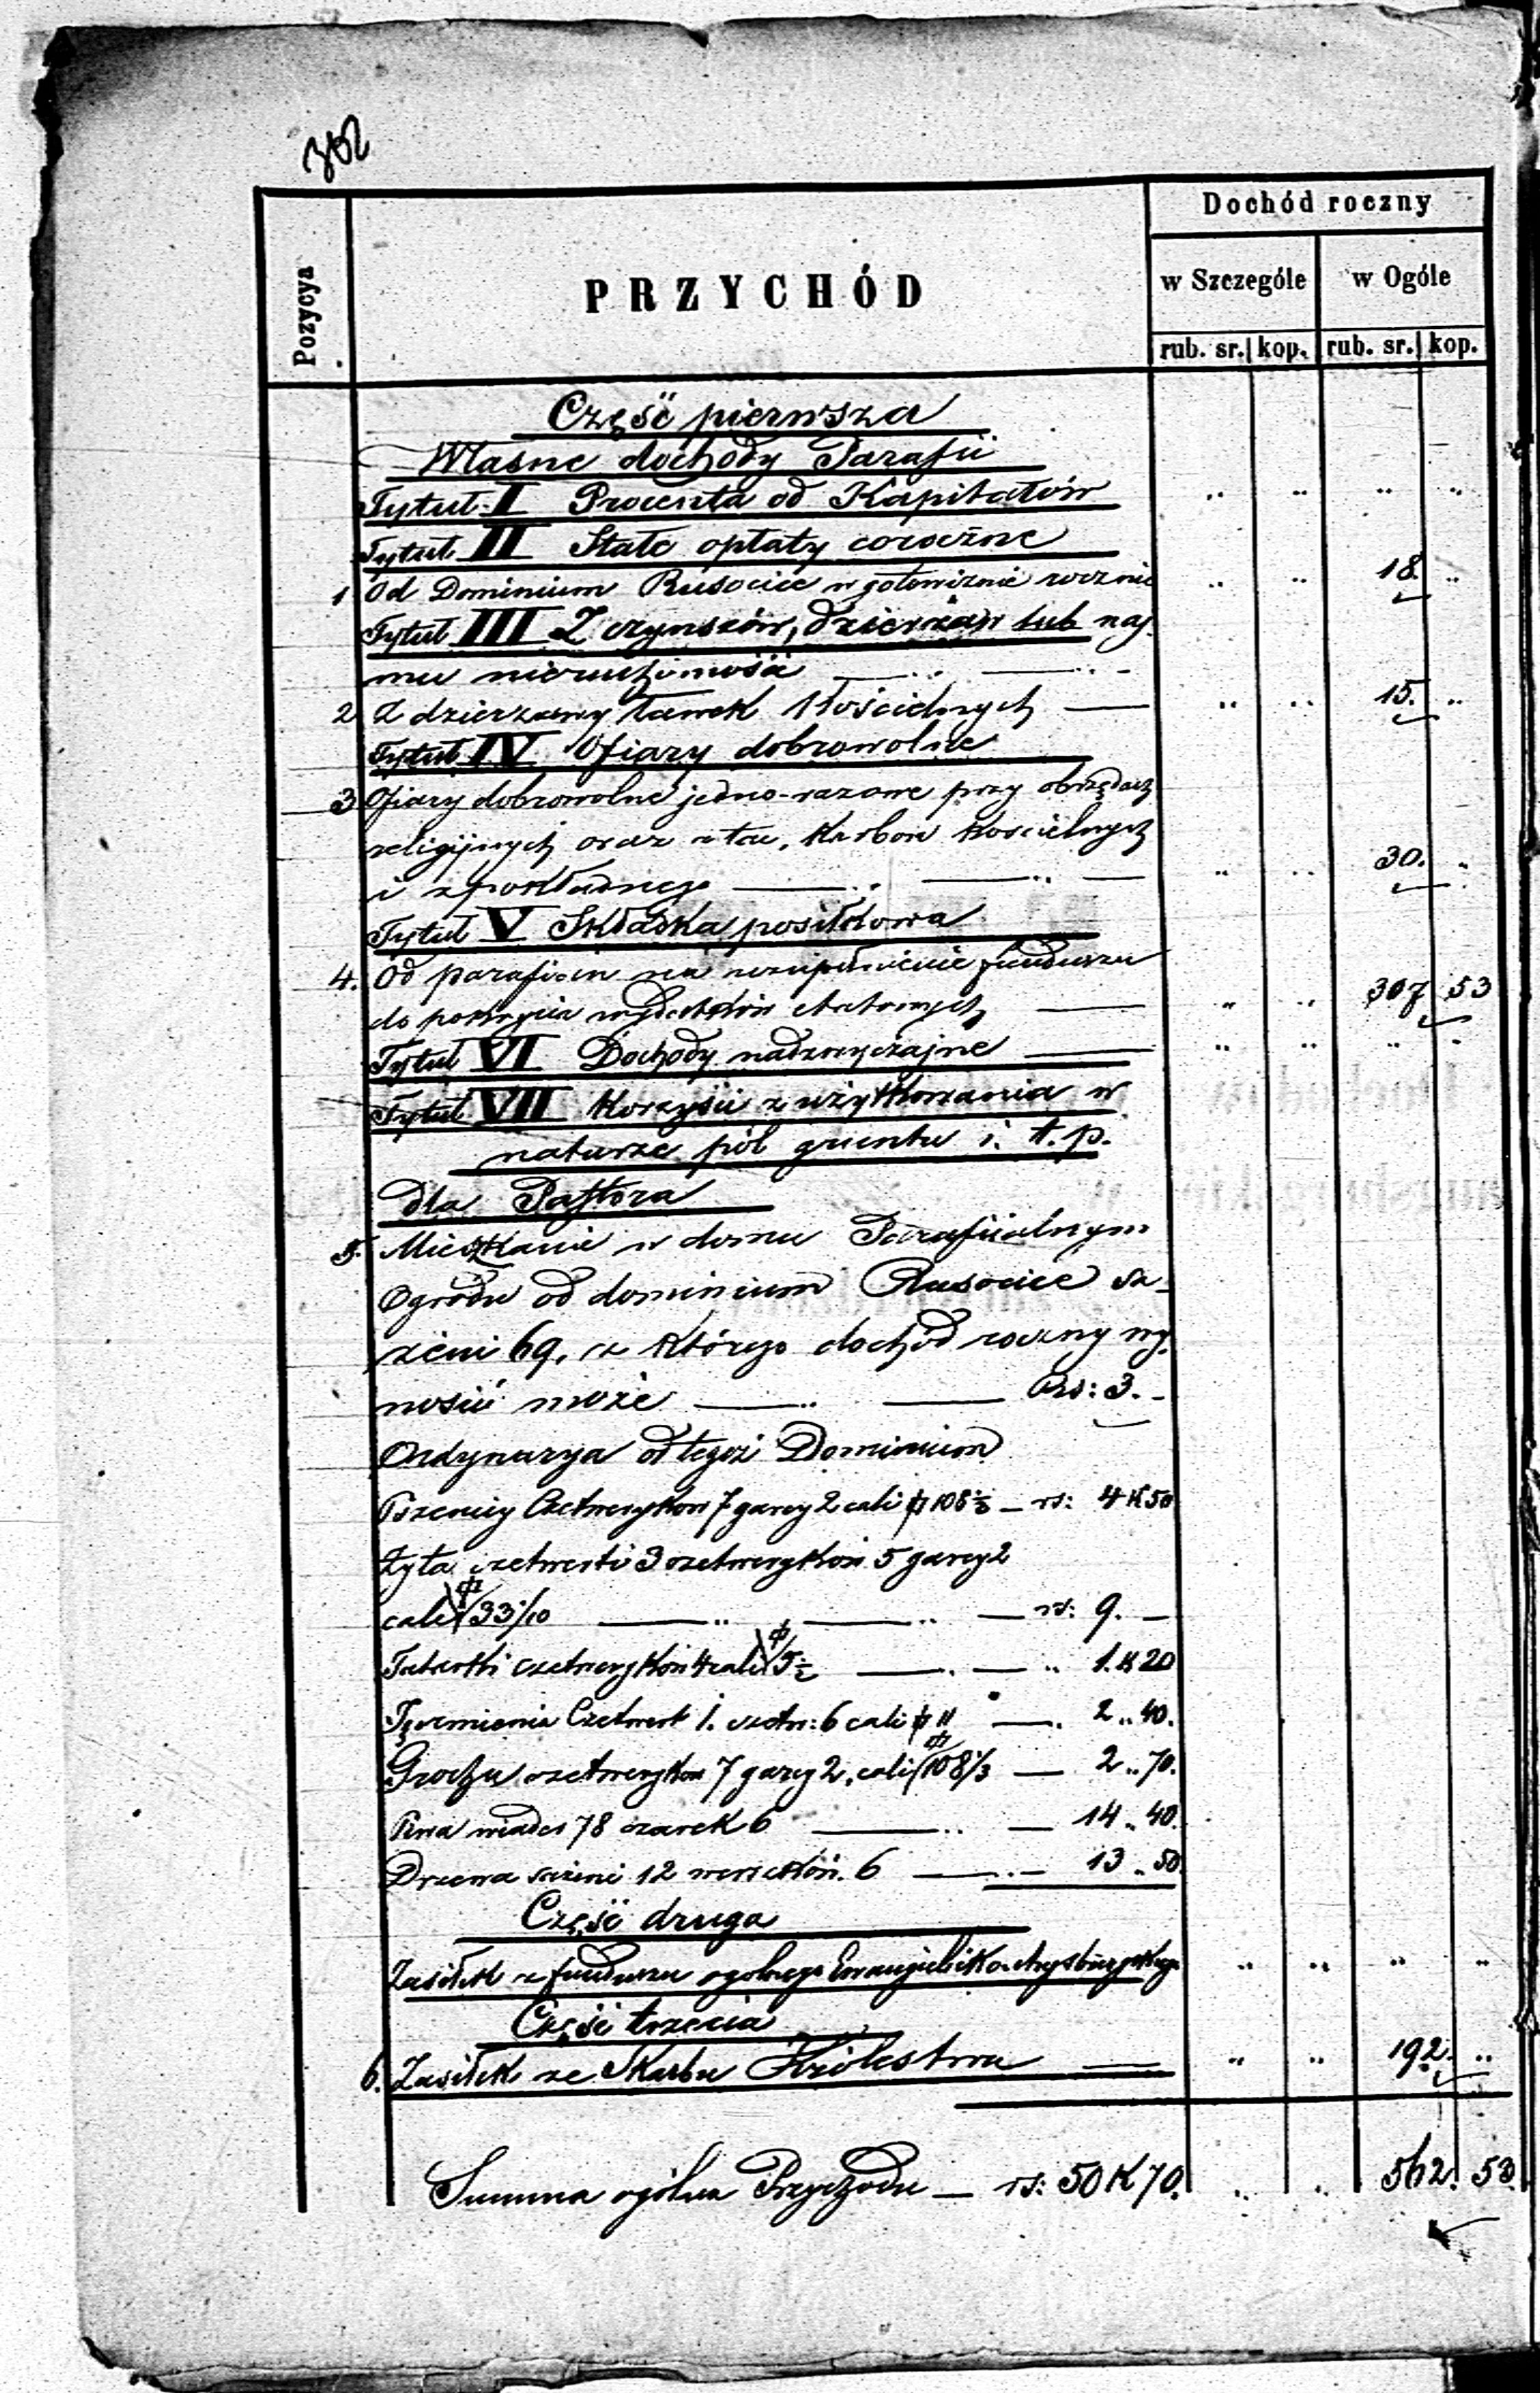 362
Dochód roczny
Pozycya
PRZYCHÓD
w Szczególe w Ogóle
rub. sr. kop. rub. sr. kop.
Część pierwsza
Własne dochody Parafii
Tytuł I Procenta od Kapitałów " " " "
Tytuł II Stałe opłaty coroczne
1 Od Dominium Rusocice w gotowiźnie rocznie " " 18. "
Tytuł III Z czynszów, dzierżaw lub naj-
mu nieruchomości
2 Z dzierżawy ławek Kościelnych " " 15. "
Tytuł IV Ofiary dobrowolne
3 Ofiary dobrowolne jedno-razowe przy obrzędach
religijnych oraz z tac, Karbon Kościelnych
i z pokładnego " " 30. "
Tytuł V Składka posiłkowa
4. Od parafian na uzupełnienie funduszu
do pokrycia wydatków etatowych " " 307 53
Tytuł VI Dochody nadzwyczajne " " " "
Tytuł VII Korzyści z użytkowania w
naturze pól gruntu i. t. p.
Dla Pastora
5. Mieszkanie w domu Parafiialnym
Ogrodu od dominium Rusocice są-
żeni 69, z którego dochód roczny wy-
nosić może Rs: 3. –
Ordynarya od tegoż Dominium
Pszenicy Czetwerykow 7 garcy 2 cali 108 1/3 – rs: 4 K 50
Żyta czetwerti 3 czetwerykow 5 garcy 2
cali 33 1/10 rs: 9. –
Tatarki czetwerykow 4 cali 5 1/2 " 1. K 20
Jęczmienia Czetwert 1. czetw: 6 cali 11 2 " 40.
Grochu czetwerykow 7 garcy 2, cali 108 1/3 2 " 70.
Piwa wiader 78 czarek 6 14 " 40.
Drzewa sążeni 12 werszków. 6 13 " 50.
Część druga
Zasiłek z funduszu ogólnego Ewangielicko-Augsburgskiego " " " "
Część trzecia
6. Zasiłek ze Skarbu Królestwa " " 192. "
Summa ogólna Przychodu – rs: 50 K 70. " " 562. 53.